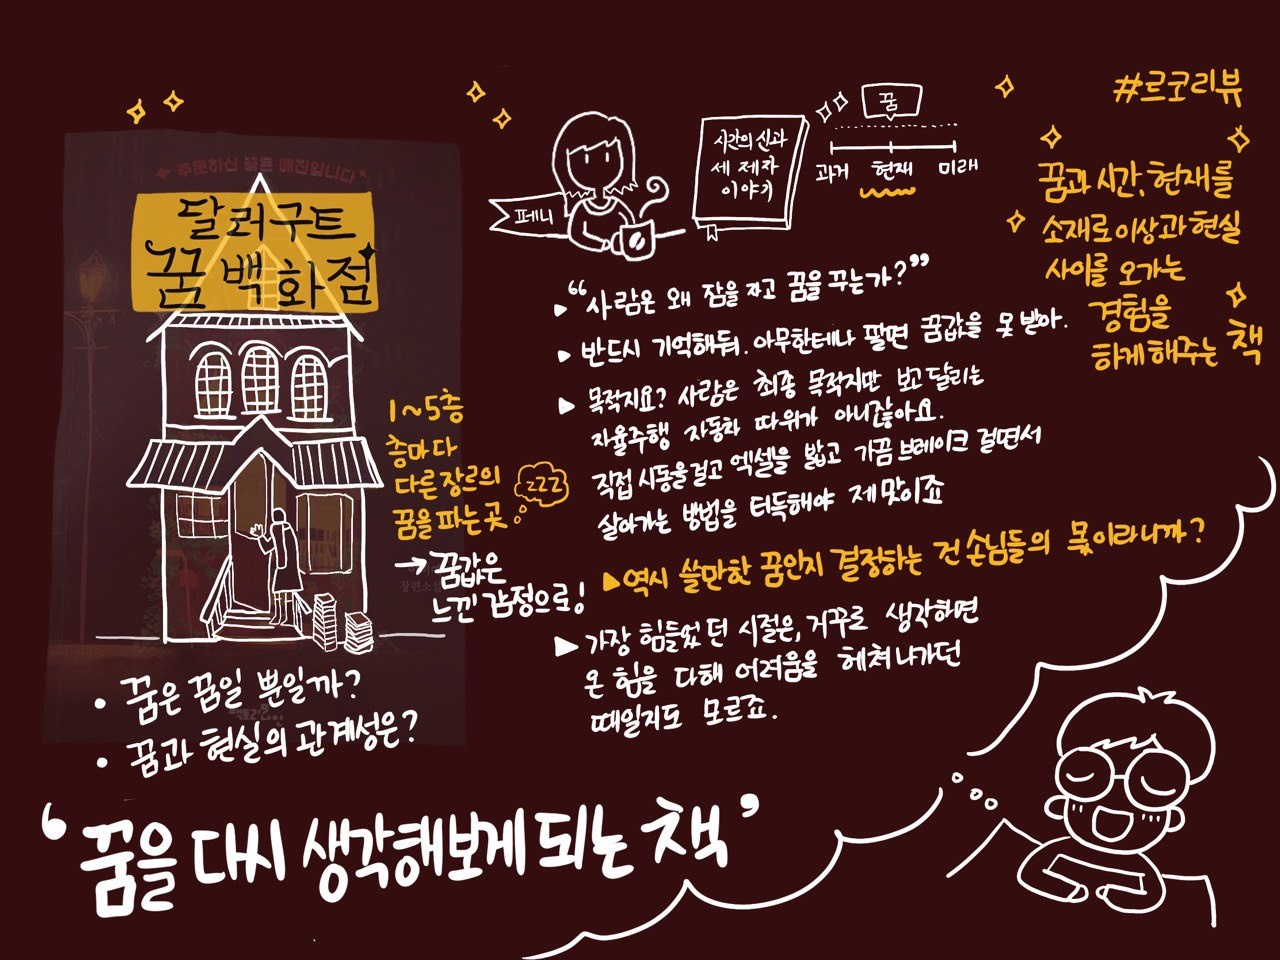 #르코리뷰
주문하신 꿈은 매진입니다
달러구트
꿈 백화점
페니
시간의 신과
세 제자
이야기
꿈
과거 현재 미래
꿈과 시간, 현재를
소재로 이상과 현실
사이를 오가는
경험을
하게 해주는 책
▶ “사람은 왜 잠을 자고 꿈을 꾸는가?”
▶ 반드시 기억해둬. 아무한테나 팔면 꿈값을 못 받아.
▶ 목적지요? 사람은 최종 목적지만 보고 달리는
자율주행 자동차 따위가 아니잖아요.
직접 시동을 걸고 엑셀을 밟고 가끔 브레이크 걸면서
살아가는 방법을 터득해야 제맛이죠
▶ 역시 쓸만한 꿈인지 결정하는 건 손님들의 몫이라니까?
▶ 가장 힘들었던 시절은, 거꾸로 생각하면
온 힘을 다해 어려움을 헤쳐나가던
때일지도 모르죠.
1~5층
층마다
다른 장르의
꿈을 파는 곳
zzz
→ 꿈값은
느낀 감정으로!
장편소설
• 꿈은 꿈일 뿐일까?
• 꿈과 현실의 관계성은?
‘꿈을 다시 생각해보게 되는 책’